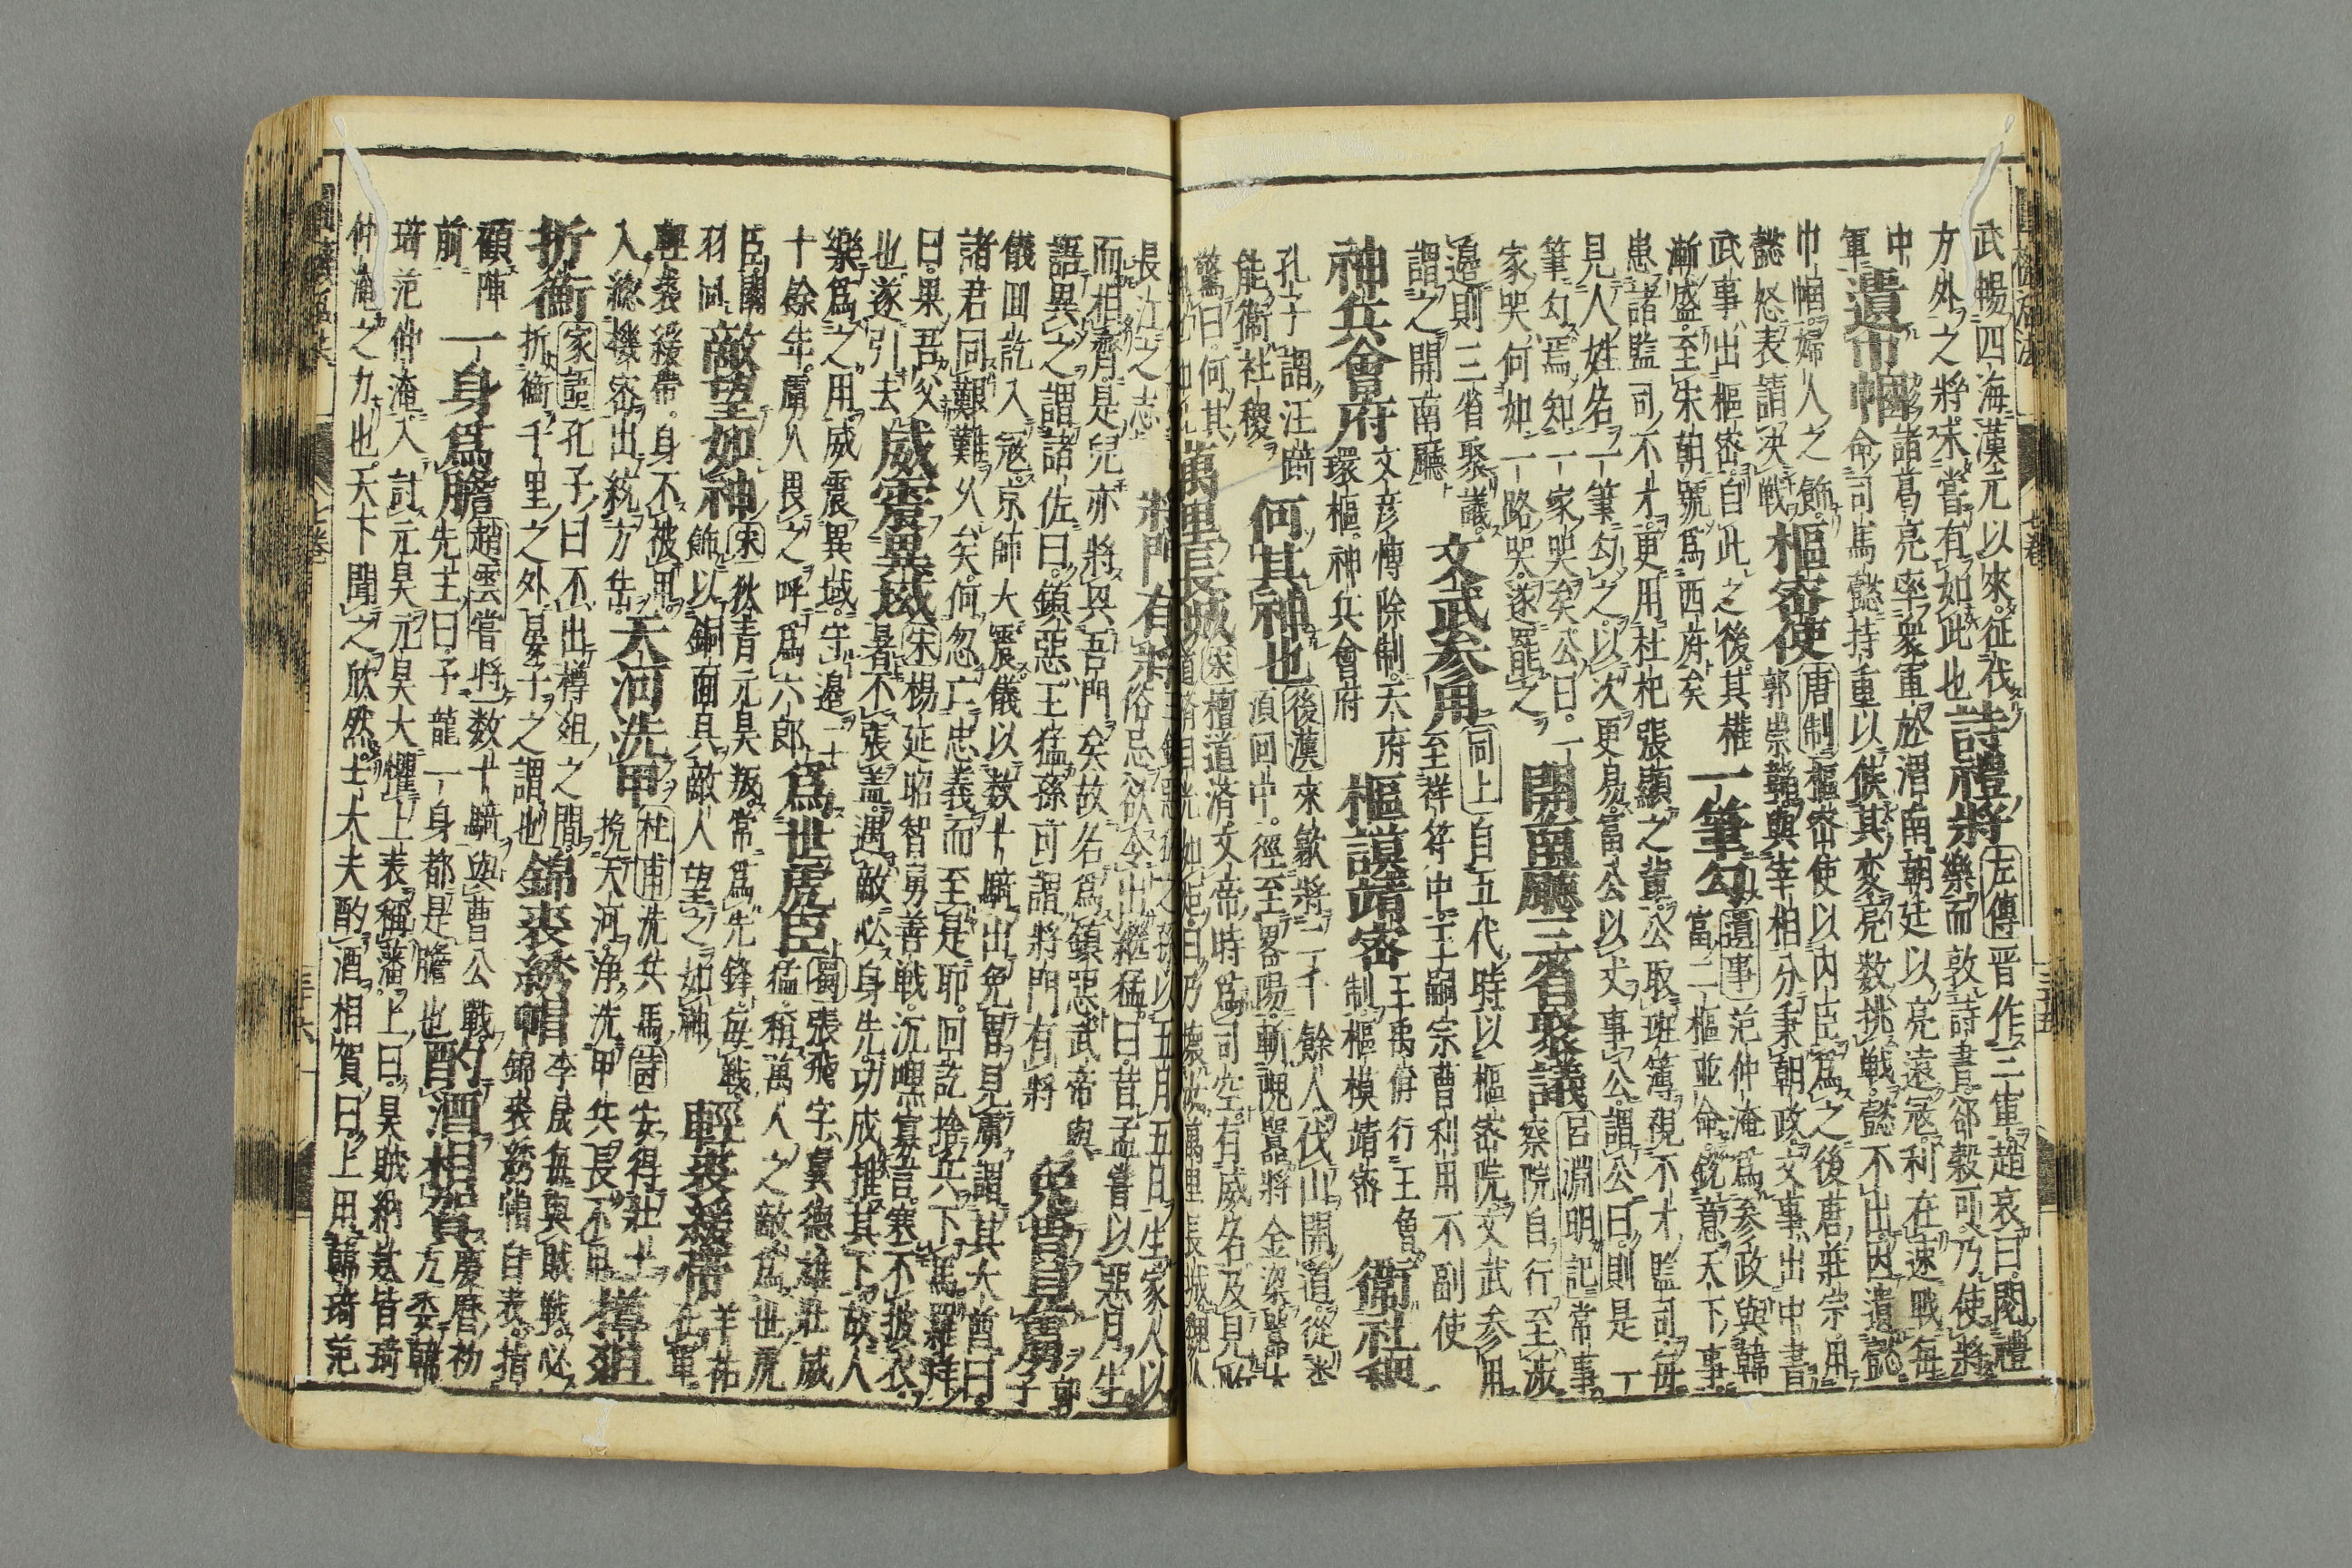 武暢四海漢元以來征伐
方外之將未嘗有如此也
詩禮將
左傳晉作三軍趙衰曰閱禮
樂而敦詩書郤縠可乃使將
中
軍
遺巾幗
諸葛亮率衆軍於渭南朝廷以亮遠寇利在速戰每
命司馬懿持重以候其変亮数挑戦懿不出因遺懿
巾幗婦人之飾
懿怒表請決戦
樞密使
唐制樞密使以内臣爲之後唐莊宗用
郭崇韜與宰相分秉朝政文事出中書
武事出樞密自此之後其權
漸盛至宋朝號爲西府矣
一筆勾
遺事范仲淹爲参政與韓
富二樞並命鋭意天下事
患諸監司不才更用杜杞張顯之輩公取班簿視不才監司毎
見人姓名一筆勾之以次更易富公以丈事公謂公曰則是一
筆勾焉知一家哭矣公曰一
家哭何如一路哭遂罷之
開南廳三省聚議
呂淵明記常事
察院自行至渉
邉則三省聚議
謂之開南廳
文武参用
同上自五代時以樞密院文武参用
至祥符中王嗣宗曹利用不副使
神兵會府
文彦博除制天府
環樞神兵會府
樞謨靖密
王禹偁行王魯
制樞模靖密
衛社稷
孔子謂汪踦
能衛社稷
何其神也
後漢來歙將二千餘人伐山開道從
湏回中徑至畧陽斬隗囂將金梁囂大
驚曰何其
萬里長城
宋檀道濟文帝時爲司空有威名及見
長江之志
將門有將
而相齊是兒亦將興吾門矣故名爲鎮惡武帝與
語異之謂諸佐曰鎮惡王猛孫可謂將門有將
免冑見虜
郭子
儀回訖入寇京師大震儀以数十騎出免冑見虜謂其大酋曰
諸君同艱難乆矣何忽亡忠義而至是耶回訖捨兵下馬羅拜
曰果吾父
也遂引去
威震異域
宋楊延昭智勇善戦沉嘿寡言寒不披衣
暑不張盖遇敵必身先功成推其下故人
樂爲之用威震異域守邉二十
十餘年虜人畏之呼爲六郎
爲世虎臣
蜀張飛字翼德雄壯威
猛稱萬人之敵爲世虎
臣關
羽同
敵望如神
宋狄青元昊叛常爲先鋒毎戦
飾以銅面具敵人望之如神
輕裘緩帶
羊祜
在軍
輕裘緩帶身不被甲
入総機密出統方岳
天河洗甲
杜甫洗兵馬詩安得壯士
挽天河浄洗甲兵長不用
樽俎
折衝
家語孔子曰不出樽俎之間
折衝千里之外晏子之謂也
錦裘綉帽
李晟毎與賊戰必
錦裘綉帽自表指
顧陣
前
一身爲膽
趙雲嘗將数十騎與曹公戰
先主曰子龍一身都是膽也
酌酒相賀
慶曆初
方委韓
琦范仲淹入討元昊元昊大懼上表稱藩上曰昊賊納欵皆琦
仲淹之力也天下聞之欣然士大夫酌酒相賀曰上用韓琦范